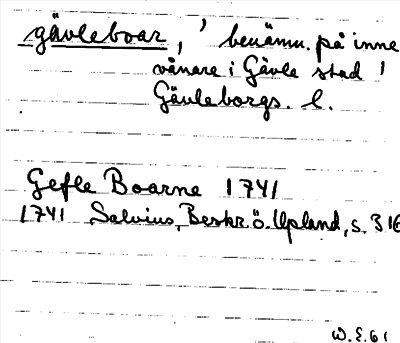 gävleboar, ' benämn. på inne
vånare i Gävle stad '
Gävleborgs. l.
Gefle Boarne 1741
1741 Salvius, Beskr. ö. Upland, s. 316
W.E. 61